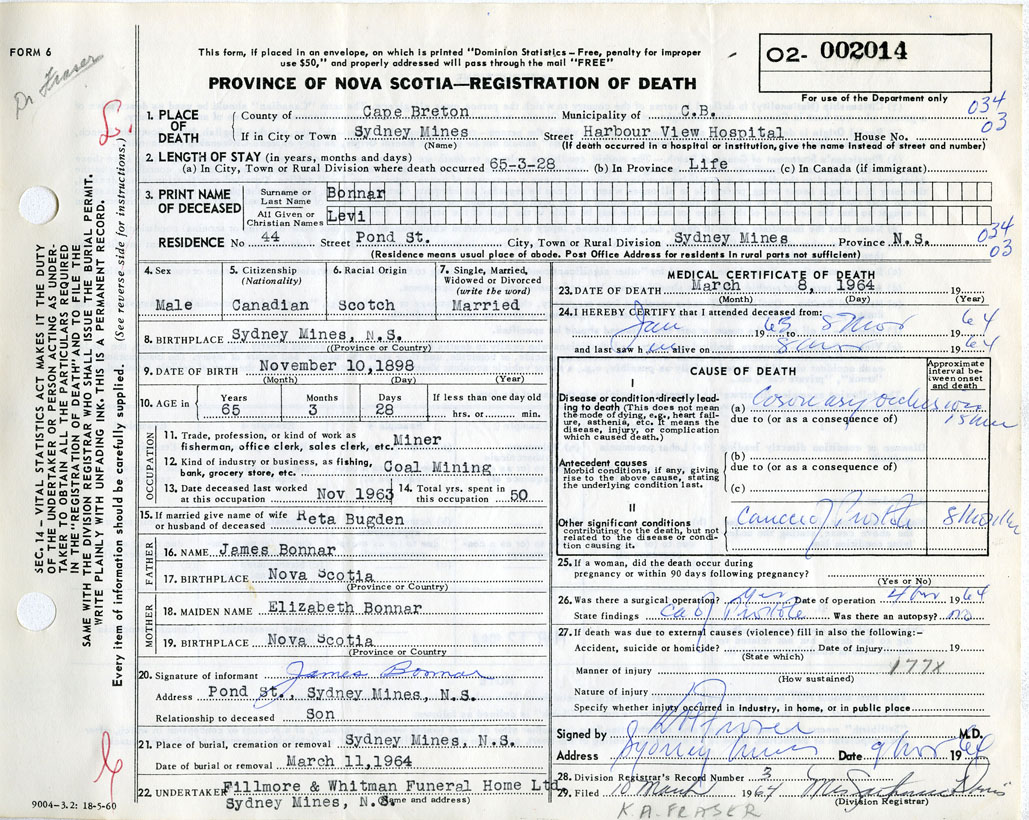 FORM 6
Dr Fraser
This form, if placed in an envelope, on which is printed "Dominion Statistics – Free, penalty for improper
use $50," and properly addressed will pass through the mail "FREE"
PROVINCE OF NOVA SCOTIA—REGISTRATION OF DEATH
02- 002014
For use of the Department only
034
03
1. PLACE OF DEATH
County of Cape Breton Municipality of C.B.
If in City or Town Sydney Mines Street Harbour View Hospital House No.
(Name) (If death occurred in a hospital or institution, give the name instead of street and number)
2. LENGTH OF STAY (in years, months and days)
(a) In City, Town or Rural Division where death occurred 65-3-28 (b) In Province Life (c) In Canada (if immigrant)
3. PRINT NAME OF DECEASED
Surname or Last Name Bonnar
All Given or Christian Names Levi
RESIDENCE No 44 Street Pond St. City, Town or Rural Division Sydney Mines Province N.S.
034
03
(Residence means usual place of abode. Post Office Address for residents in rural parts not sufficient)
4. Sex
Male
5. Citizenship
(Nationality)
Canadian
6. Racial Origin
Scotch
7. Single, Married,
Widowed or Divorced
(write the word)
Married
8. BIRTHPLACE Sydney Mines, N.S.
((Province or Country)
9. DATE OF BIRTH November 10,1898
(Month) (Day) (Year)
10. AGE in
Years Months Days If less than one day old
65 3 28 hrs. or min.
OCCUPATION
11. Trade, profession, or kind of work as
fisherman, office clerk, sales clerk, etc. Miner
12. Kind of industry or business, as fishing,
bank, grocery store, etc. Coal Mining
13. Date deceased last worked
at this occupation Nov 1963
14. Total yrs. spent in
this occupation 50
15. If married give name of wife
or husband of deceased Reta Bugden
FATHER
16. NAME James Bonnar
17. BIRTHPLACE Nova Scotia
(Province or Country)
MOTHER
18. MAIDEN NAME Elizabeth Bonnar
19. BIRTHPLACE Nova Scotia
(Province or Country
20. Signature of informant James Bonnar
Address Pond St., Sydney Mines, N.S.
Relationship to deceased Son
21. Place of burial, cremation or removal Sydney Mines, N.S.
Date of burial or removal March 11,1964
22. UNDERTAKER Fillmore & Whitman Funeral Home Ltd.
Sydney Mines, N.S.
(Name and address)
MEDICAL CERTIFICATE OF DEATH
23. DATE OF DEATH March 8, 1964 19
(Month) (Day) (Year)
24. I HEREBY CERTIFY that I attended deceased from:
Jan 1963 to 8 Mar 1964
and last saw h im alive on 8 Mar 1964
CAUSE OF DEATH
Approximate
interval be-
tween onset
and death
I
Disease or condition directly lead-
ing to death (This does not mean
the mode of dying, e.g., heart fail-
ure, asthenia, etc. It means the
disease, injury, or complication
which caused death.)
(a) Coronary occlusion
due to (or as a consequence of)
15 min
Antecedent causes
Morbid conditions, if any, giving
rise to the above cause, stating
the underlying condition last.
(b)
due to (or as a consequence of)
(c)
II
Other significant conditions
contributing to the death, but not
related to the disease or condi-
tion causing it.
Cancer of Prostate
25. If a woman, did the death occur during
pregnancy or within 90 days following pregnancy?
(Yes or No)
26. Was there a surgical operation? Yes Date of operation 1964
State findings Ca of Prostate Was there an autopsy? no
27. If death was due to external causes (violence) fill in also the following:–
Accident, suicide or homicide? Date of injury 19
(State which)
Manner of injury 177X
(How sustained)
Nature of injury
Specify whether injury occurred in industry, in home, or in public place
Signed by Fraser M.D.
Address Sydney Mines Date 9 Mar 1964
28. Division Registrar's Record Number 3
29. Filed 10 March 1964
(Division Registrar)
K.A. FRASER
SEC. 14 – VITAL STATISTICS ACT MAKES IT THE DUTY
OF THE UNDERTAKER OR PERSON ACTING AS UNDER-
TAKER TO OBTAIN ALL THE PARTICULARS REQUIRED
IN THE "REGISTRATION OF DEATH" AND TO FILE THE
SAME WITH THE DIVISION REGISTRAR WHO SHALL ISSUE THE BURIAL PERMIT.
WRITE PLAINLY WITH UNFADING INK. THIS IS A PERMANENT RECORD.
Every item of information should be carefully supplied. (See reverse side for instructions.)
9004-3.2: 18-5-60